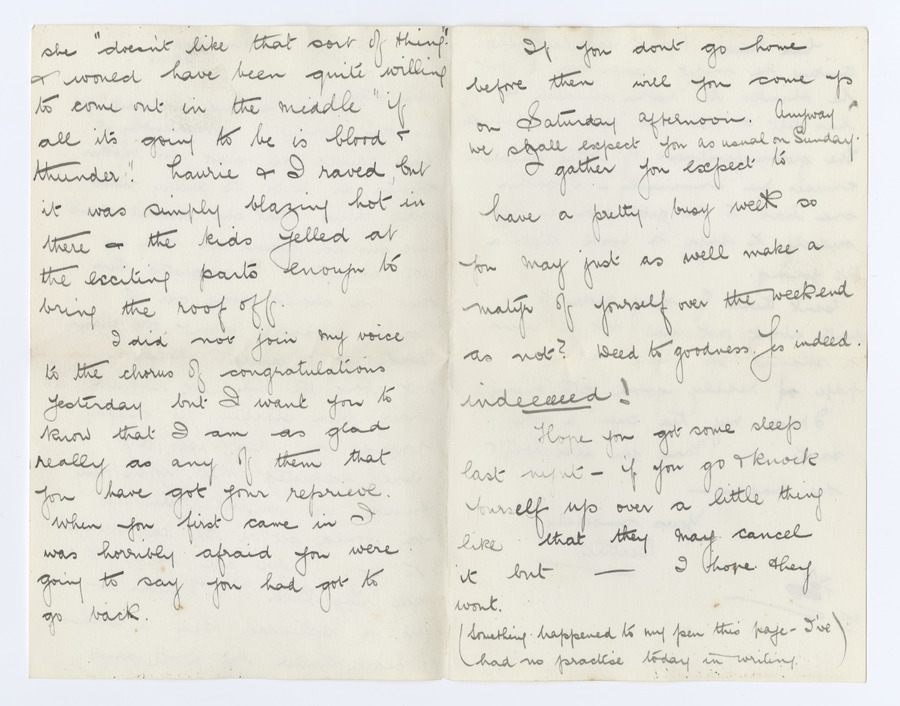 she "doesn't like that sort of thing".
& would have been quite willing
to come out in the middle "if
all its going to be is blood &
thunder". Laurie & I raved, but
it was simply blazing hot in
there – the kids yelled at
the exciting parts enough to
bring the roof off.
I did not join my voice
to the chorus of congratulations
yesterday but I want you to
know that I am as glad
really as any of them that
you have got your reprieve.
When you first came in I
was horribly afraid you were
going to say you had got to
go back.
If you dont go home
before then will you come up
on Saturday afternoon. Anyway
we shall expect you as usual on Sunday.
I gather you expect to
have a pretty busy week so
you may just as well make a
matyr of yourself over the weekend
as not? Weed to goodness. Yes indeed.
indeeeeed!
Hope you got some sleep
last night – if you go & knock
yourself up over a little thing
like that they may cancel
it but — I hope they
wont.
(Something happened to my pen this page – I've
had no practise today in writing)